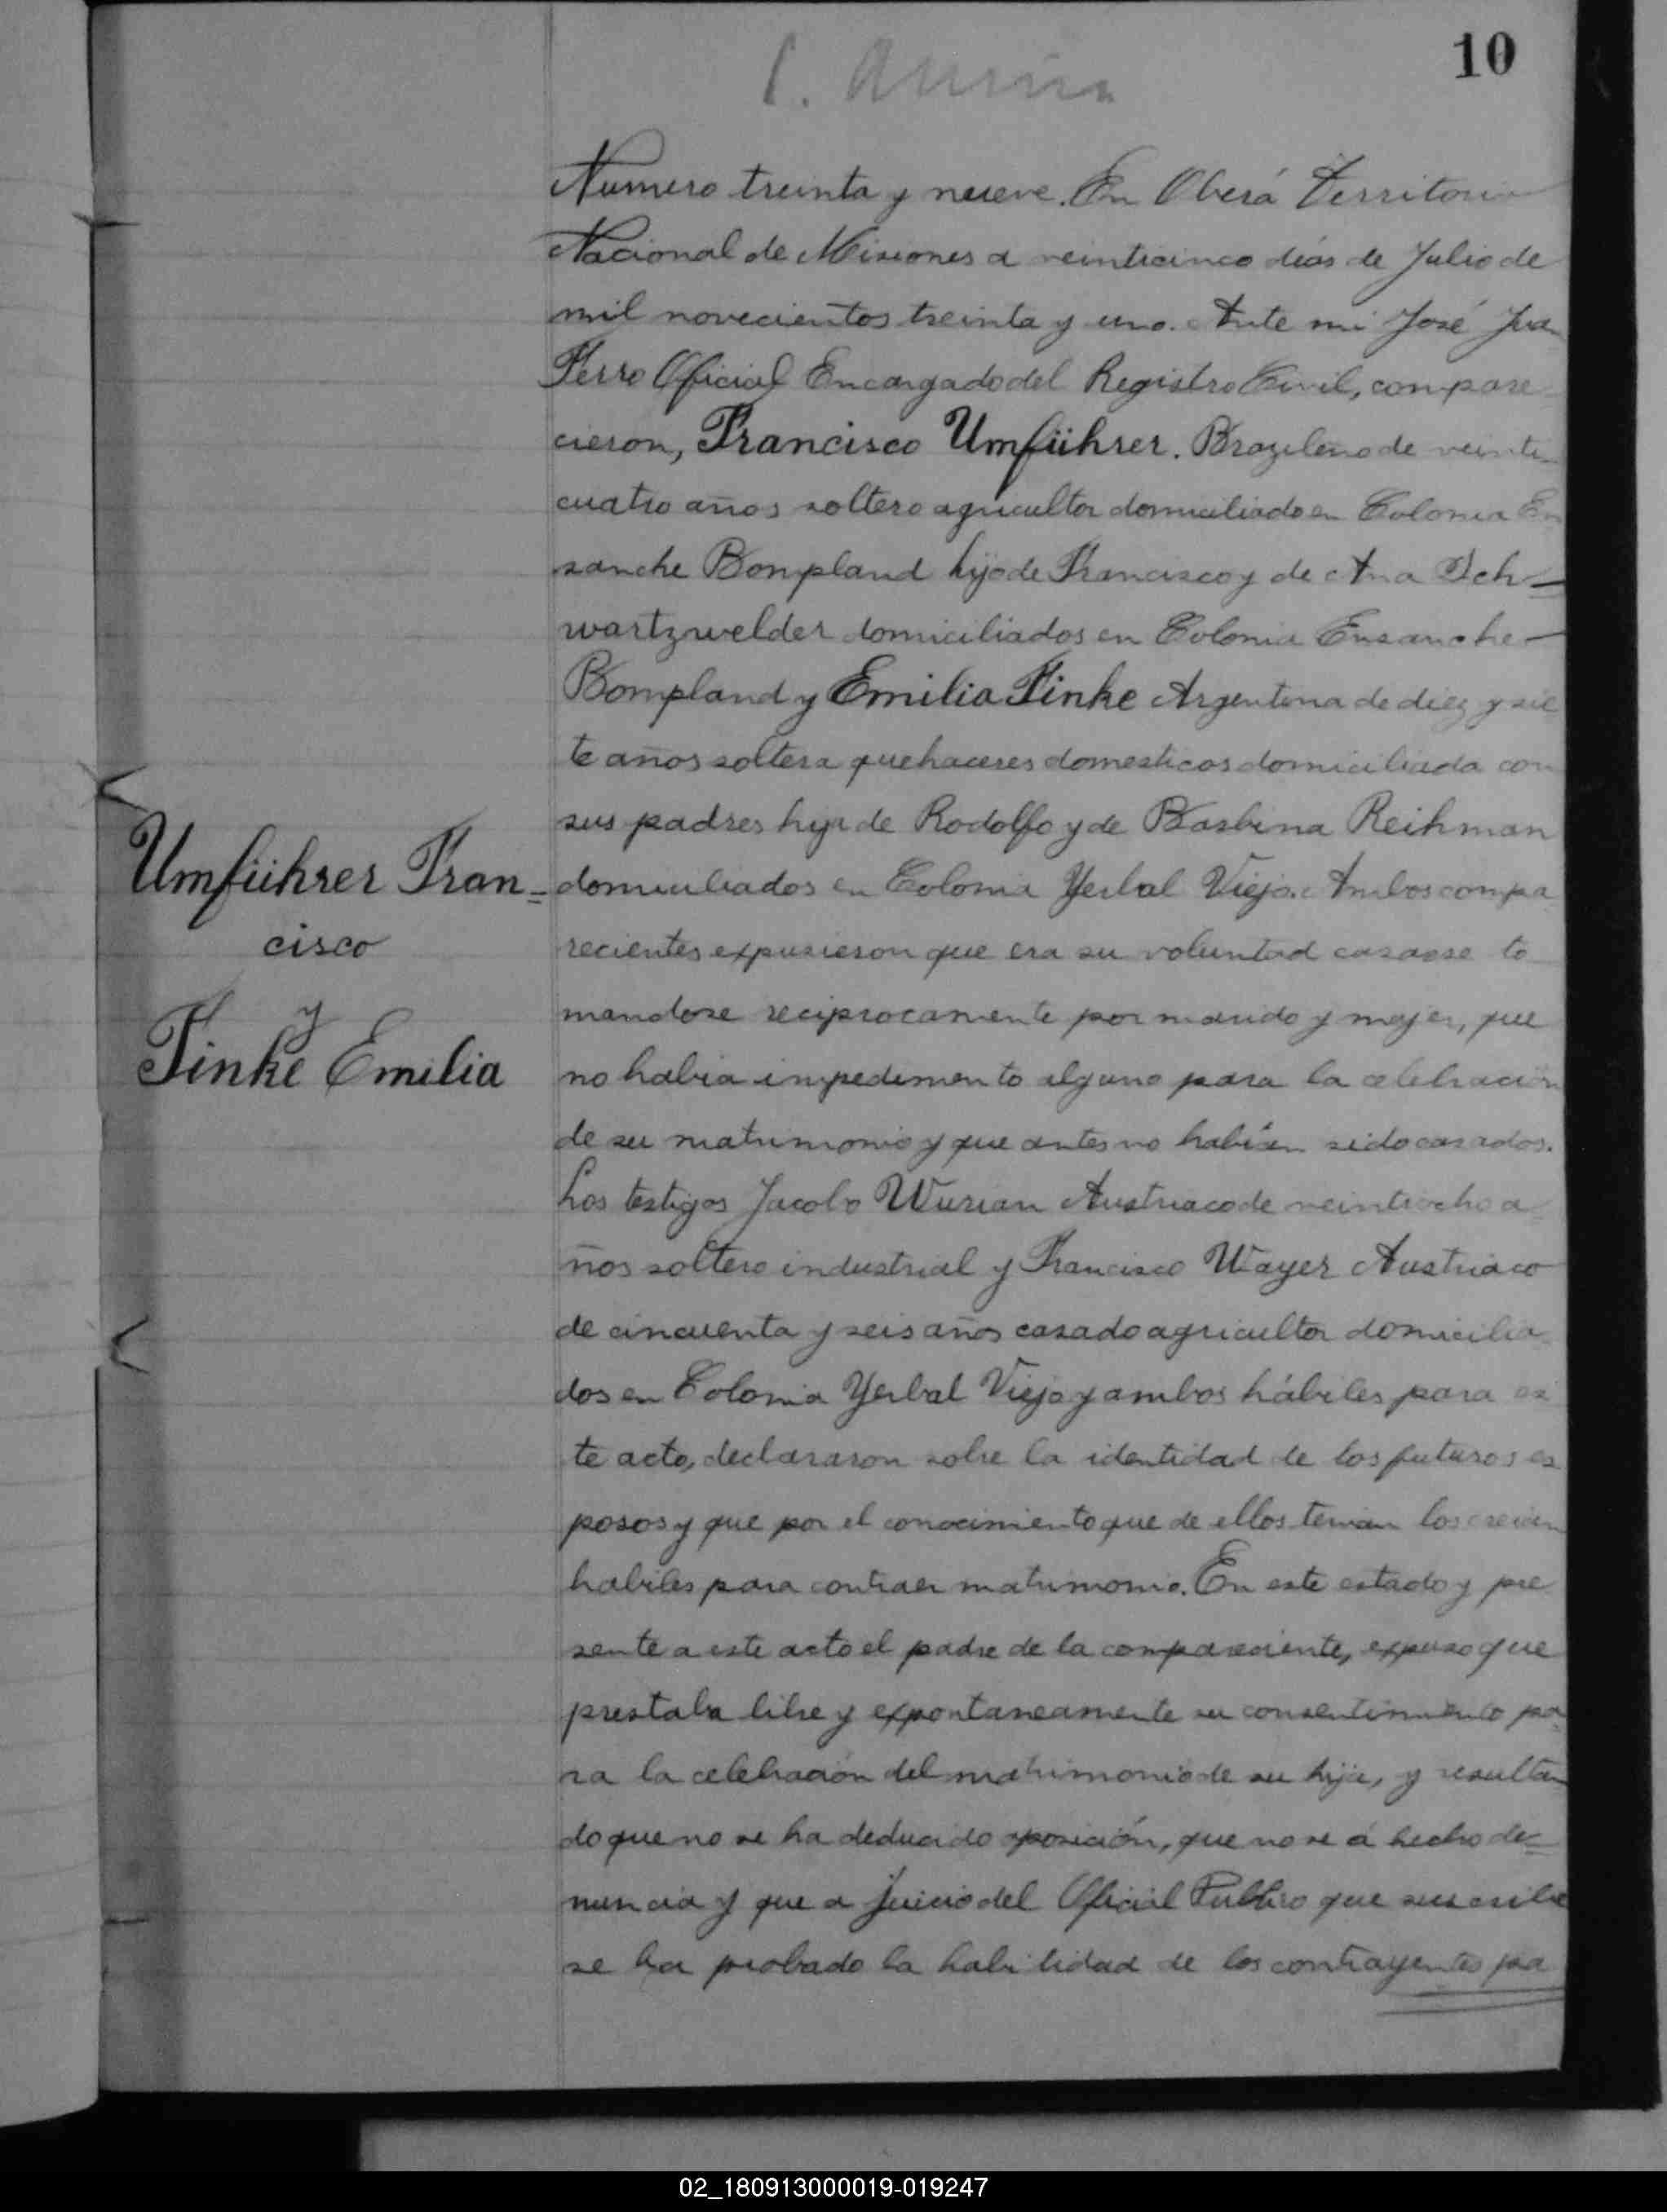 10
Numero treinta y nueve. En Oberá Territorio
Nacional de Misiones a veinticinco días de Julio de
mil novecientos treinta y uno. Ante mi José Juan
Ferro Oficial Encargado del Registro Civil, compare
cieron, Francisco Umführer. Brazileño de veinti
cuatro años soltero agricultor domiciliado en Colonia En
sanche Bompland hijo de Francisco y de Ana Sch
wartzwelder domiciliados en Colonia Ensanche
Bompland y Emilia Finke Argentina de diez y sie
te años soltera quehaceres domesticos domiciliada con
sus padres hija de Rodolfo y de Barbina Reihman
Umführer Fran=
cisco
y
Finke Emilia
domiciliados en Colonia Yerbal Viejo. Ambos compa
recientes expusieron que era su voluntad casarse to
mandose reciprocamente por marido y mujer, que
no habia impedimento alguno para la celebración
de su matrimonio y que antes no habían sido casados.
Los testigos Jacobo Wurian Austriaco de veintiocho a
ños soltero industrial y Francisco Wayer Austriaco
de cincuenta y seis años casado agricultor domicilia
dos en Colonia Yerbal Viejo y ambos hábiles para es
te acto, declararon sobre la identidad de los futuros es
posos y que por el conocimiento que de ellos tenian los creian
habiles para contraer matrimonio. En este estado y pre
sente a este acto el padre de la compareciente, expuso que
prestaba libre y expontaneamente su consentimiento pa
ra la celebración del matrimonio de su hija, y resultan
do que no se ha deducido oposición, que no se á hecho de=
nuncia y que a juicio del Oficial Publico que suscribe
se ha probado la habilidad de los contrayentes pa
02_180913000019-019247